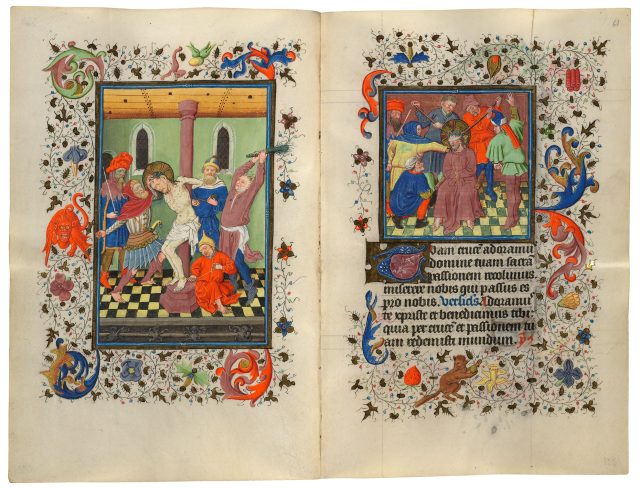 61
Tuam crucē adoramus
domine tuam sacrā
passionem recolimus
miserere nobis qui passus es
pro nobis. Adoramus
te xpriste et benedicimus tibi
quia per crucē et passionem tu
am redemisti mundum.